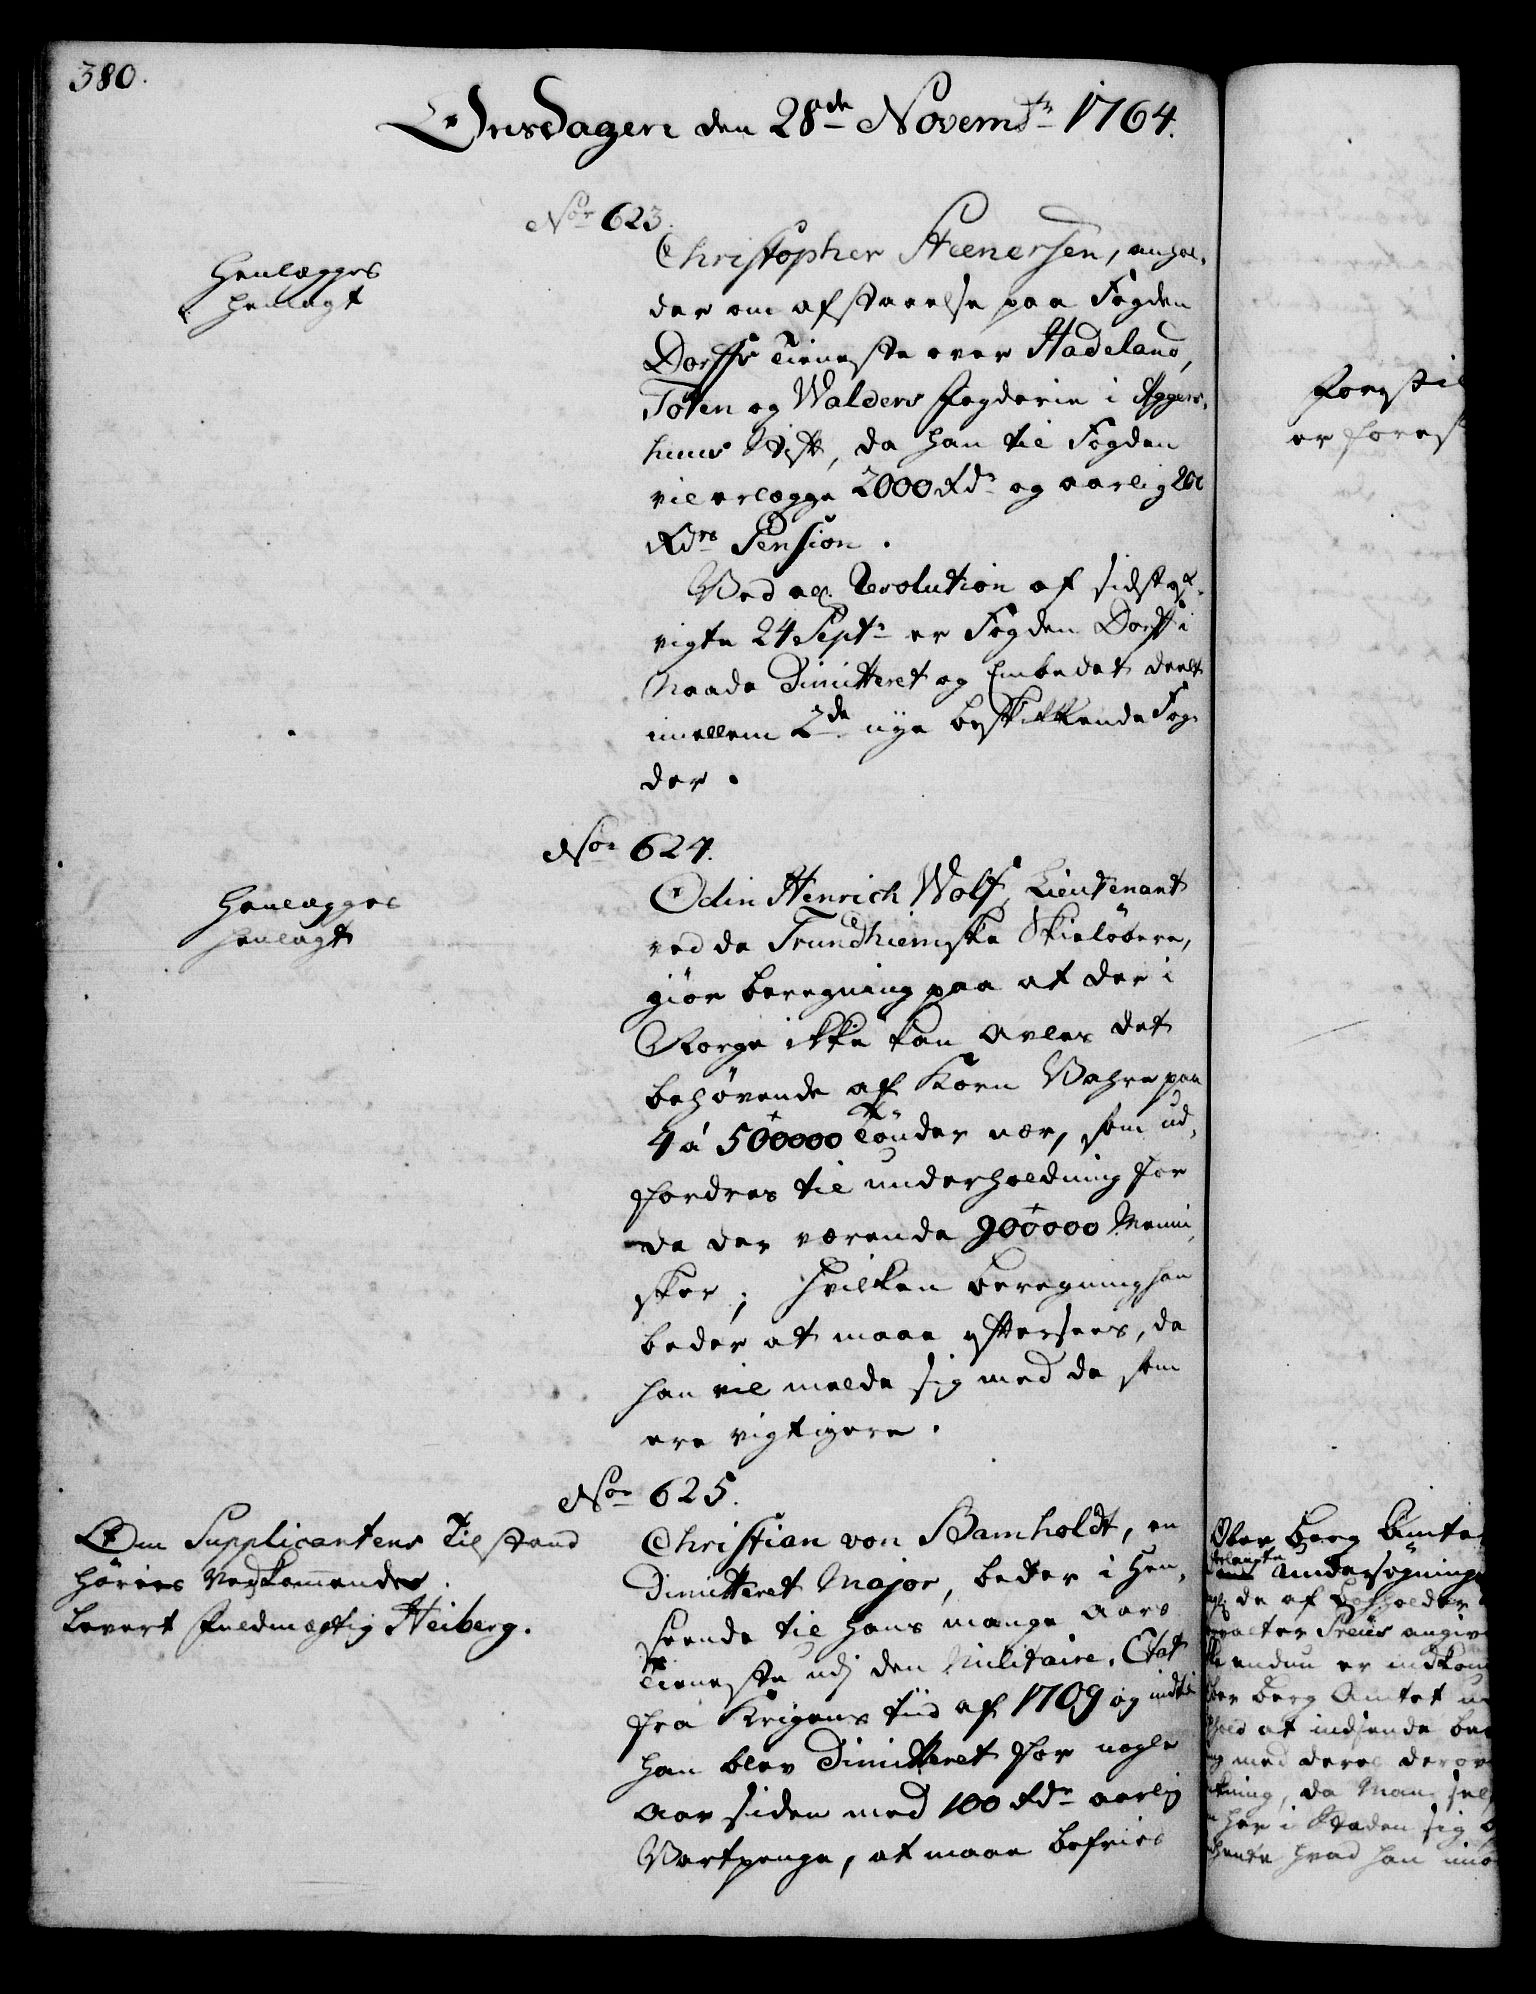 380.
Onsdagen den 28de Novembr 1764.
Nor 623.
Henlægges
henlagt
Christopher Steenersen, anhol-
der om afstaaelse paa Fogden
Dorffs Tieneste over Hadeland,
Toten og Walders Fogderie i Aggers-
huus Stift, da han til Fogden
vil erlegge 2000 Rdr og aarlig 200
Rdrs Pension.
Ved all. Resolution af sidst af-
vigte 24 Septr er Fogden Dorff i
Naade Dimitteret og Embedet deelt
imellem 2de nye beskikkende Fog-
der.
Nor 624.
Henlægges
henlagt
Odin Henrich Wolf, Lieutenant
ved de Trundhiemske Skieløbere,
giør beregning paa at der i
Norge ikke kan avles det
behøvende af Korn Vahre paa
4 á 500000 Tønder nær, som ud-
fordres til underholdning for
de der værende 900000 Menni-
sker; hvilken beregning han
beder at maae eftersees, da
han vil melde sig med de som
ere vigtigere.
Nor 625.
Om Supplicantens Tilstand
høries Vedkommende.
Levert Fuldmægtig Heiberg.
Christian von Bamholdt, en
Dimitteret Major, beder i Hen-
seende til hans mange Aars
Tieneste udj den Militaire Etat
fra Krigens tiid af 1709 og indtil
han blev Dimitteret for nogle
Aar siden med 100 Rdr aarlig
Vartpenge, at maae befries
Forestil
er forest
Ober Berg Amte
Undersøgning
de af
angiv
endnu er indkom
Berg Amtet
at indsende
med
da Man selv
her i Staden sig
hvad han